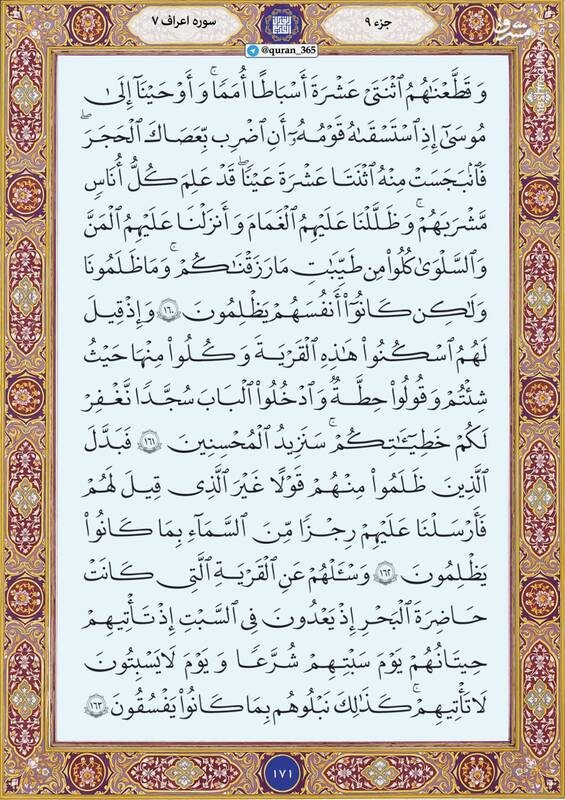 جزء ۹
@quran_365
سوره اعراف ۷
مشرق
وَقَطَّعْنَٰهُمُ ٱثْنَتَىْ عَشْرَةَ أَسْبَاطًا أُمَمًا ۚ وَأَوْحَيْنَآ إِلَىٰ
مُوسَىٰٓ إِذِ ٱسْتَسْقَىٰهُ قَوْمُهُۥٓ أَنِ ٱضْرِب بِّعَصَاكَ ٱلْحَجَرَ ۖ
فَٱنۢبَجَسَتْ مِنْهُ ٱثْنَتَا عَشْرَةَ عَيْنًا ۖ قَدْ عَلِمَ كُلُّ أُنَاسٍ
مَّشْرَبَهُمْ ۚ وَظَلَّلْنَا عَلَيْهِمُ ٱلْغَمَٰمَ وَأَنزَلْنَا عَلَيْهِمُ ٱلْمَنَّ
وَٱلسَّلْوَىٰ كُلُوا۟ مِن طَيِّبَٰتِ مَا رَزَقْنَٰكُمْ ۚ وَمَا ظَلَمُونَا
وَلَٰكِن كَانُوٓا۟ أَنفُسَهُمْ يَظْلِمُونَ ۱۶۰ وَإِذْ قِيلَ
لَهُمُ ٱسْكُنُوا۟ هَٰذِهِ ٱلْقَرْيَةَ وَكُلُوا۟ مِنْهَا حَيْثُ
شِئْتُمْ وَقُولُوا۟ حِطَّةٌ وَٱدْخُلُوا۟ ٱلْبَابَ سُجَّدًا نَّغْفِرْ
لَكُمْ خَطِيٓـَٰٔتِكُمْ ۚ سَنَزِيدُ ٱلْمُحْسِنِينَ ۱۶۱ فَبَدَّلَ
ٱلَّذِينَ ظَلَمُوا۟ مِنْهُمْ قَوْلًا غَيْرَ ٱلَّذِى قِيلَ لَهُمْ
فَأَرْسَلْنَا عَلَيْهِمْ رِجْزًا مِّنَ ٱلسَّمَآءِ بِمَا كَانُوا۟
يَظْلِمُونَ ۱۶۲ وَسْـَٔلْهُمْ عَنِ ٱلْقَرْيَةِ ٱلَّتِى كَانَتْ
حَاضِرَةَ ٱلْبَحْرِ إِذْ يَعْدُونَ فِى ٱلسَّبْتِ إِذْ تَأْتِيهِمْ
حِيتَانُهُمْ يَوْمَ سَبْتِهِمْ شُرَّعًا وَيَوْمَ لَا يَسْبِتُونَ
لَا تَأْتِيهِمْ ۚ كَذَٰلِكَ نَبْلُوهُم بِمَا كَانُوا۟ يَفْسُقُونَ ۱۶۳
۱۷۱